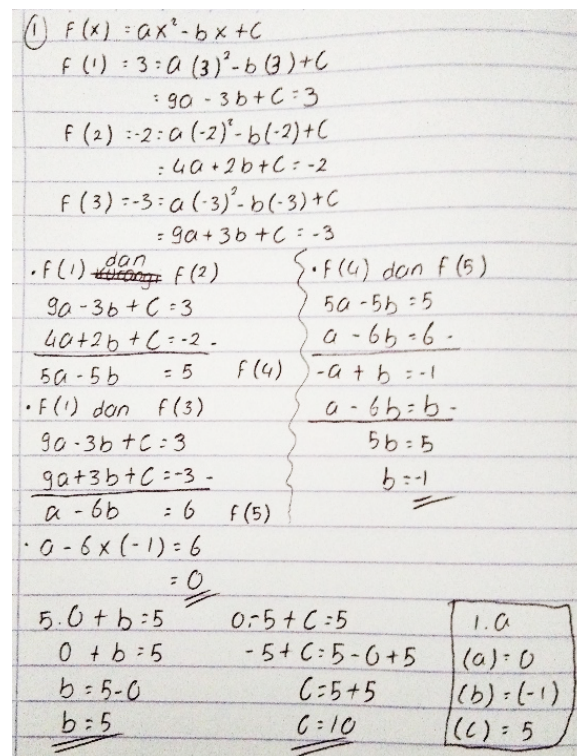 ① F(x) = ax² - bx + C
F(1) = 3 = a(3)² - b(3) + C
= 9a - 3b + C = 3
F(2) = -2 = a(-2)² - b(-2) + C
= 4a + 2b + C = -2
F(3) = -3 = a(-3)² - b(-3) + C
= 9a + 3b + C = -3
• F(1) dan F(2)
9a - 3b + C = 3
4a + 2b + C = -2 -
5a - 5b = 5 F(4)
• F(1) dan F(3)
9a - 3b + C = 3
9a + 3b + C = -3 -
a - 6b = 6 F(5)
• F(4) dan F(5)
5a - 5b = 5
a - 6b = 6 -
-a + b = -1
a - 6b = b -
5b = 5
b = -1
• a - 6 x (-1) = 6
= 0
5.0 + b = 5
0 + b = 5
b = 5 - 0
b = 5
0 - 5 + C = 5
-5 + C = 5 - 0 + 5
C = 5 + 5
C = 10
1. a
(a) = 0
(b) = (-1)
(C) = 5